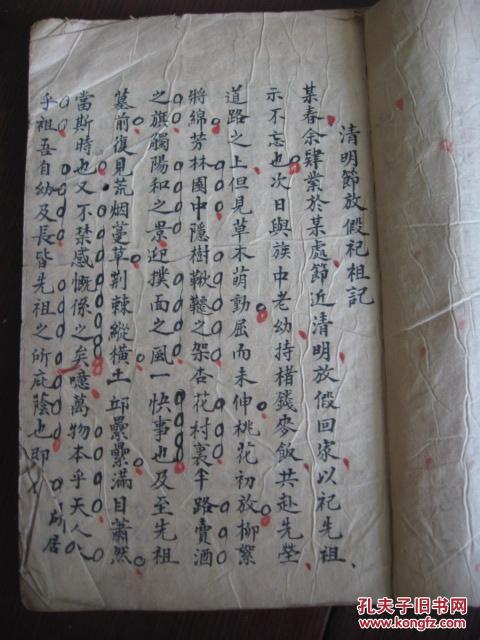 清明節放假祀祖記
某春余肄業於某處節近清明放假回家以祀先祖
示不忘也次日與族中老幼持楮錢麥飯共赴先塋
道路之上但見草木萌動屈而未伸桃花初放柳絮
將綿芳林園中隱樹鞦韆之架杏花村裏半路賣酒
之旗觸陽和之景迎撲面之風一快事也及至先祖
墓前復見荒烟蔓草荆棘縱橫土邱纍纍滿目蕭然
當斯時也又不禁感慨係之矣噫萬物本乎天人
乎祖吾自幼及長皆先祖之所庇蔭也即 所居
孔夫子旧书网
www.kongfz.com